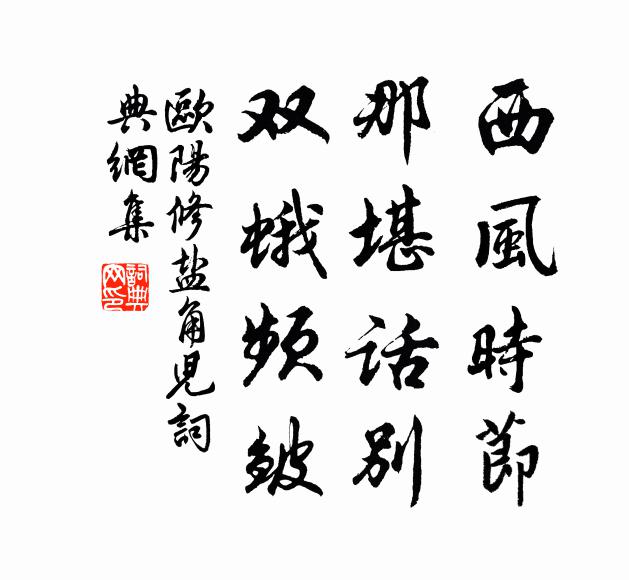 西風時節
那堪話別
双蛾频皺
歐陽修盐角児詞
典網集
詞典網印